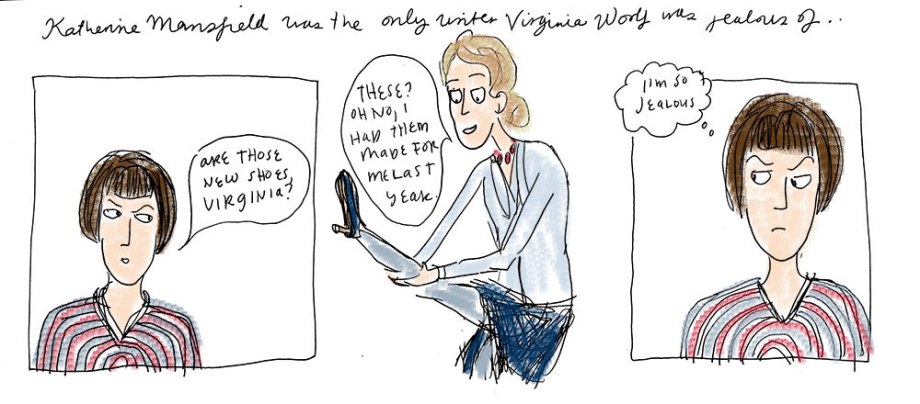 Katherine Mansfield was the only writer Virginia Woolf was jealous of..
ARE THOSE
NEW SHOES,
VIRGINIA?
THESE?
OH NO, I
HAD THEM
MADE FOR
ME LAST
YEAR.
I'M SO
JEALOUS